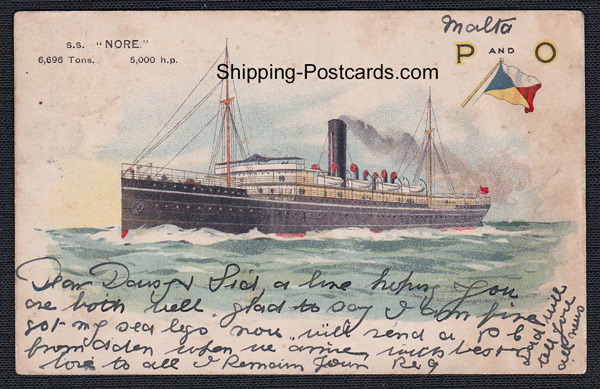 Malta
S.S. "NORE."
6,696 Tons. 5,000 h.p.
P AND O
Shipping-Postcards.com
Dear Daisy & Sid, a line hoping you
are both well glad to say I am fine
got my sea legs now will send a P C
from Aden when we arrive with best
love to all I Remain Your Reg